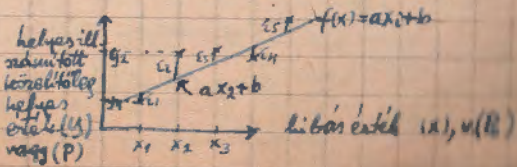 f(x) = ax₁+b
helyes ill.
számított
közelítőleg
helyes
érték (y)
vagy (P)
y₂
ε₁
ε₂
ε₃
ε₄
ε₅
ax₂+b
x₁ x₂ x₃
hibás érték (x), v(